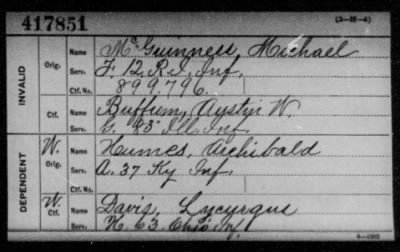 417851
(3-H-4)
INVALID
Orig. Name McGuinness, Michael
Serv. F. 12, R. I. Inf.
Ctf. No. 899,796.
Ctf. Name Buffum, Austin W.
Serv. G. 83" Ill. Inf.
DEPENDENT
W. Orig. Name Humes, Archibald
Serv. A. 37 Ky. Inf.
W. Ctf. Name Davis, Lycurgus
Serv. K. 63 Ohio Inf.